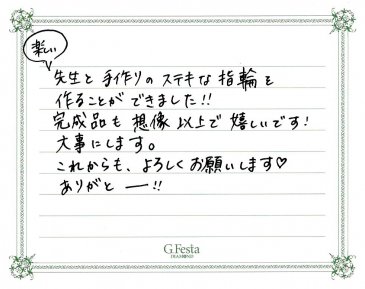 楽しい
先生と手作りのステキな指輪を
作ることができました!!
完成品も想像以上で嬉しいです!
大事にします。
これからも、よろしくお願いします♡
ありがとー!!
G.Festa
DIAMOND